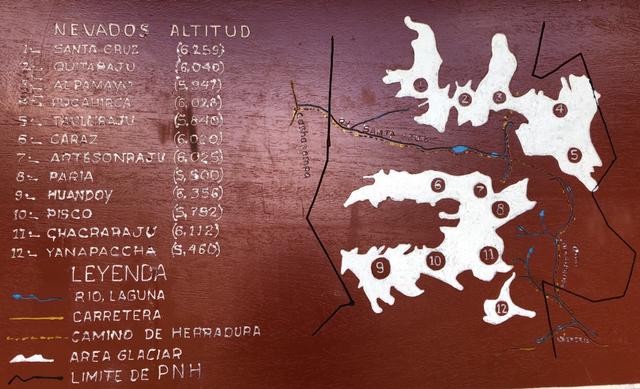 NEVADOS ALTITUD
1- SANTA CRUZ (6,259)
2- QUITARAJU (6,040)
3- ALPAMAYO (5,947)
4- PUCAHIRCA (6,028)
5- TAULLIRAJU (5,840)
6- CARAZ (6,020)
7- ARTESONRAJU (6,025)
8- PARIA (5,600)
9- HUANDOY (6,356)
10- PISCO (5,752)
11- CHACRARAJU (6,112)
12- YANAPACCHA (5,460)
LEYENDA
RIO, LAGUNA
CARRETERA
CAMINO DE HERRADURA
AREA GLACIAR
LIMITE DE PNH
1
2
3
4
5
6
7
8
9
10
11
12
Cashapampa
SANTA